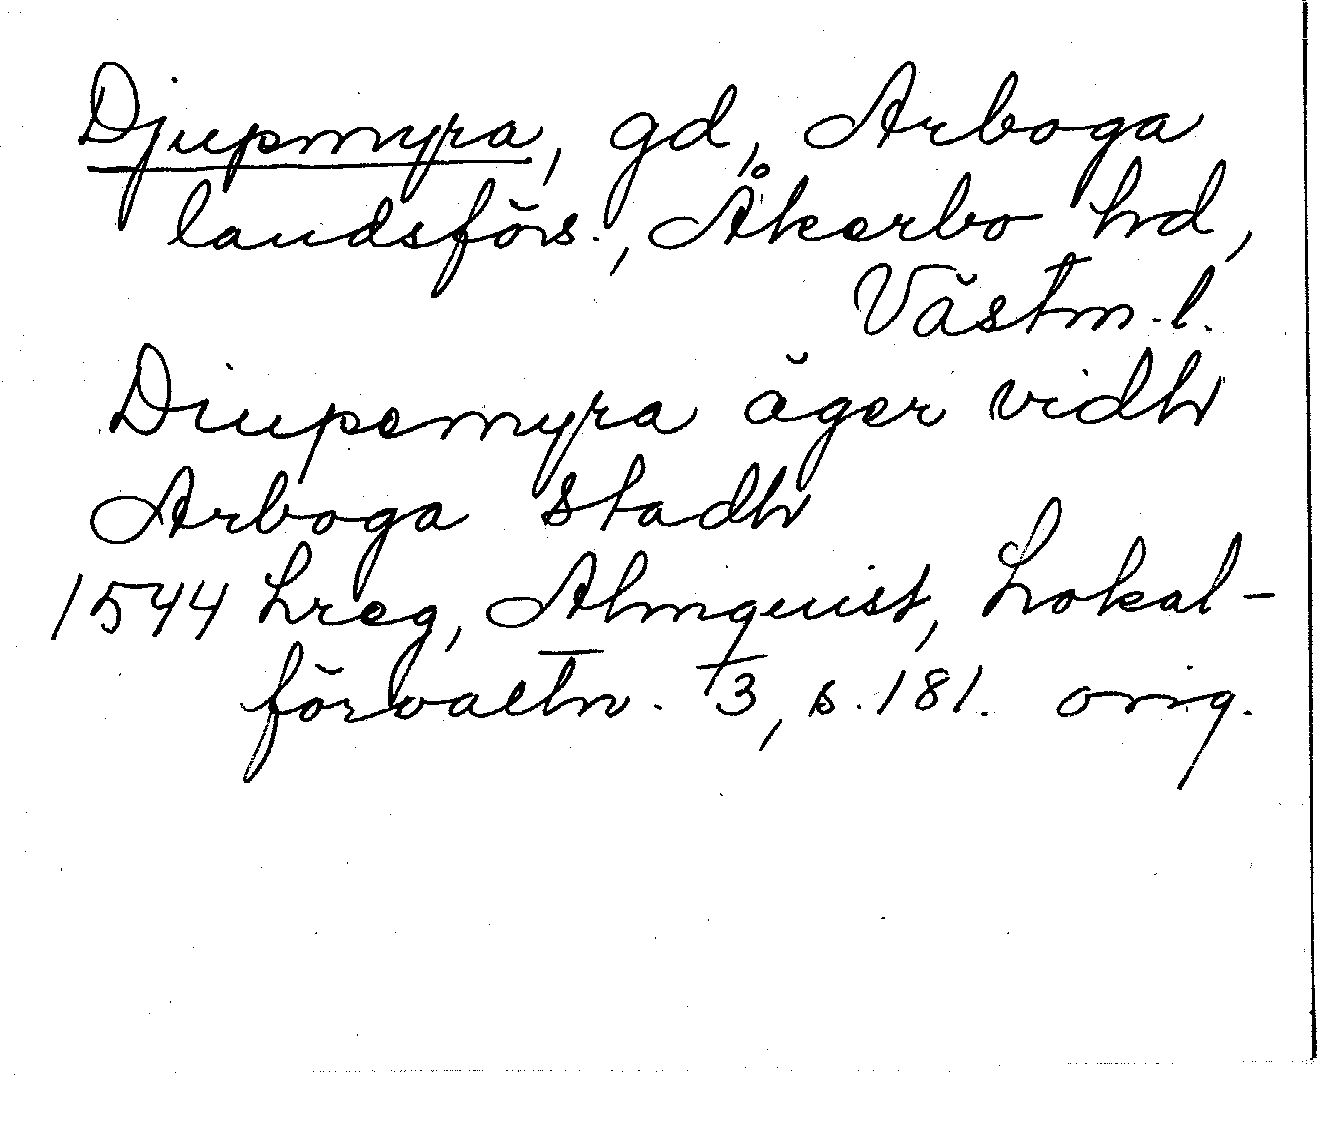 Djupmyra, gd, Arboga
landsförs., Åkerbo hd,
Västm. l.
Diupemyra äger vidh
Arboga stadh
1544 hreg, Almquist, Lokal-
förvaltn. 3, s. 181. orig.